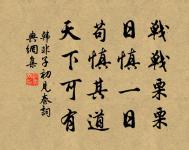 戰戰栗栗
日慎一日
苟慎其道
天下可有
韓非子初見秦詞
典網集